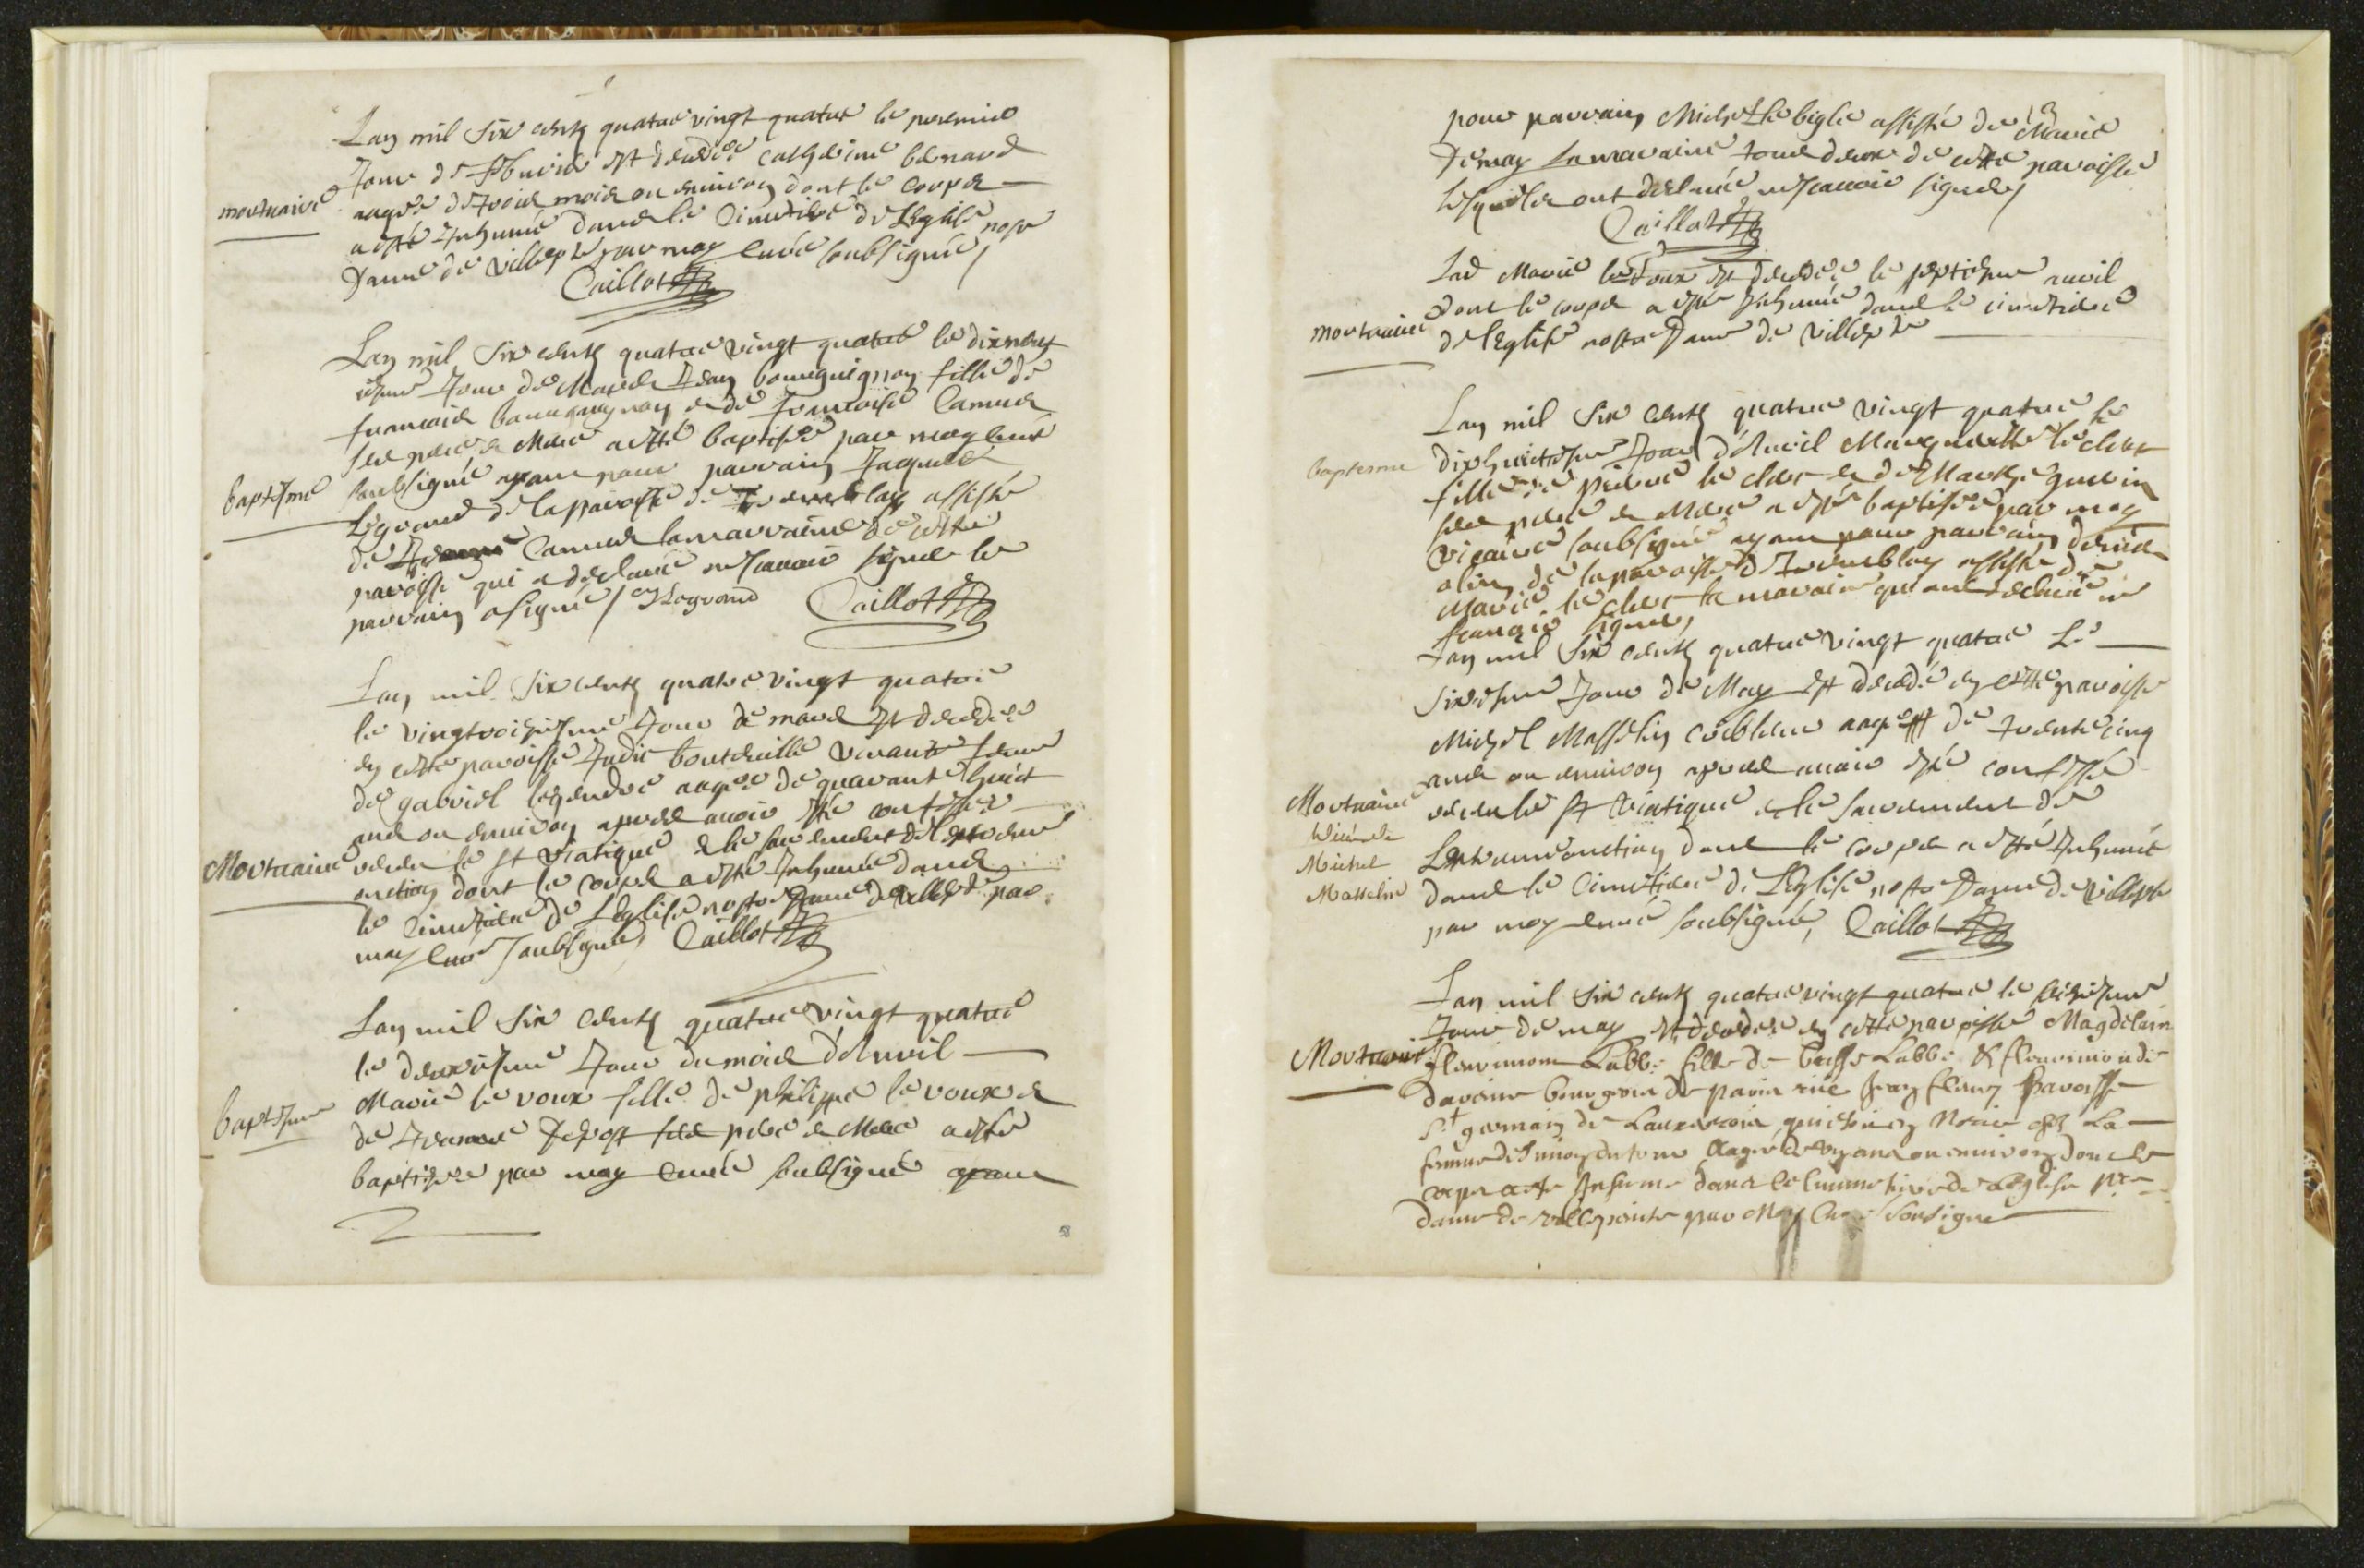 Lan mil Six cents quatre vingt quatre le premier
Jour de febvrier est decedée catherine benard
mortuaire
aagée de trois mois ou environ dont le corps
a esté Inhumé dans le Cimetiere de Leglise nostre
Dame de villepte par moy Curé soubsigné
Caillot
Lan mil Six cents quatre vingt quatre le dixneuf
iesme Jour de Mars Jean bourguignon fille de
francois bourguignon et de francoise Camus
ses pere et Mere a esté baptisée par moy Curé
baptesme
soubsigné ayant pour parrain Jacques
Legrand de la paroisse de tremblay assisté
de Jeanne Camus la marraine de cette
paroisse qui a declaré ne scavoir signer le
parrain a signé / Legrand Caillot
Lan mil Six cents quatre vingt quatre
le vingtroisiesme Jour de mars est decedée
en cette paroisse Judic bouteville vivante femme
de gabriel legendre aagée de quarante huict
ans ou environ apres avoir esté confessée
Mortuaire
receu le st viatique et le sacrement de lextreme
onction dont le corps a esté Inhumé dans
le Cimetiere de Leglise nostre Dame de villepte par
moy Curé soubsigné, Caillot
Lan mil Six cents quatre vingt quatre
le deuxiesme Jour du mois d'Avril
baptesme
Marie le voux fille de philippe le voux et
de Jeanne Depost ses pere et Mere a esté
baptisée par moy Curé soubsigné ayant
58
pour parrain Michel Le bigle assisté de Marie
Demay La maraine tous deux de cette paroisse
lesquels ont declaré ne scavoir signer
Caillot
Lad Marie le voux est decedée le septiesme avril
dont le corps a esté Inhumé dans le cimetiere
mortuaire
de leglise nostre Dame de villepte
Lan mil Six cents quatre vingt quatre le
baptesme
dixhuictiesme Jour d'Avril Margueritte le clerc
fille de pierre le clerc et de Marthe guerin
ses pere et Mere a esté baptisée par moy
vicaire soubsigné ayant pour parrain denis
olin de la paroisse de tremblay assisté de
Marie le clerc la maraine qui ont declaré ne
scavoir signer,
Lan mil Six cents quatre vingt quatre Le
sixiesme Jour de May est decedé en cette paroisse
Michel Masselin aagé de trente cinq
ans ou environ apres avoir esté confessé
Mortuaire
Michel
Masselin
receu le st viatique et le sacrement de
Lextreme onction dont le corps a esté Inhumé
dans le Cimetiere de Leglise nostre Dame de villepte
par moy Curé soubsigné, Caillot
Lan mil Six cents quatre vingt quatre le seiziesme
Jour de may est decedée en cette paroisse Magdelaine
Mortuaire
Labbé fille de Labbé &
bourgeois de paris rue Jean paroisse
St germain de Lauxerrois qui estoit en Norice chez La
femme de aagée de ans ou environ dont le
corps a esté Inhumé dans le cimmetiere de leglise nre
dame de villepinte par Moy Curé Soussigné